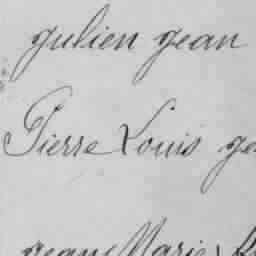 julien jean
Pierre Louis je
jeanne Marie